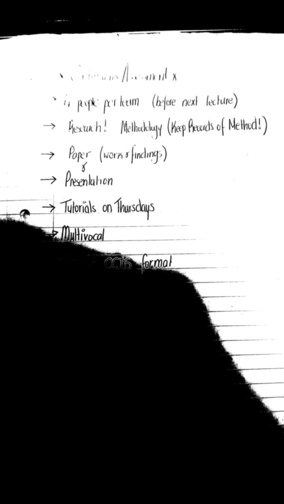 people per team (before next lecture)
→ Research! Methodology (Keep Records of Method!)
→ Paper (work & findings)
&
→ Presentation
→ Tutorials on Thursdays
→ Multivocal
format